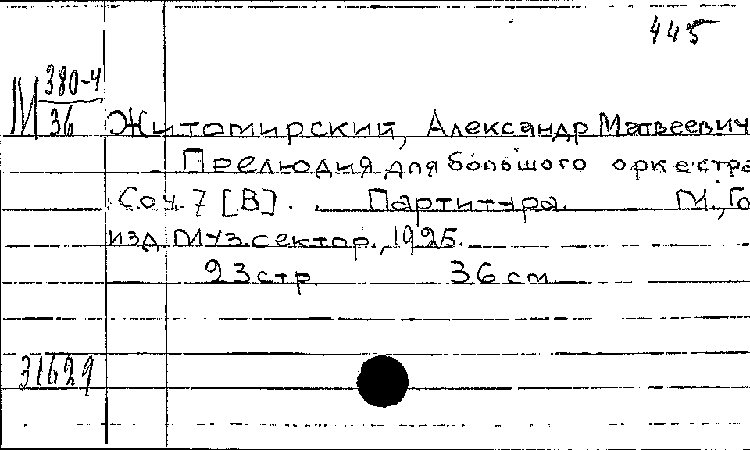 445
М 380-4
36
Житомирский, Александр Матвеевич
Прелюдия для большого оркестра
Соч. 7 [В]. Партитура. М., Го
изд. Муз. сектор, 1925.
23 стр. 36 см
31629